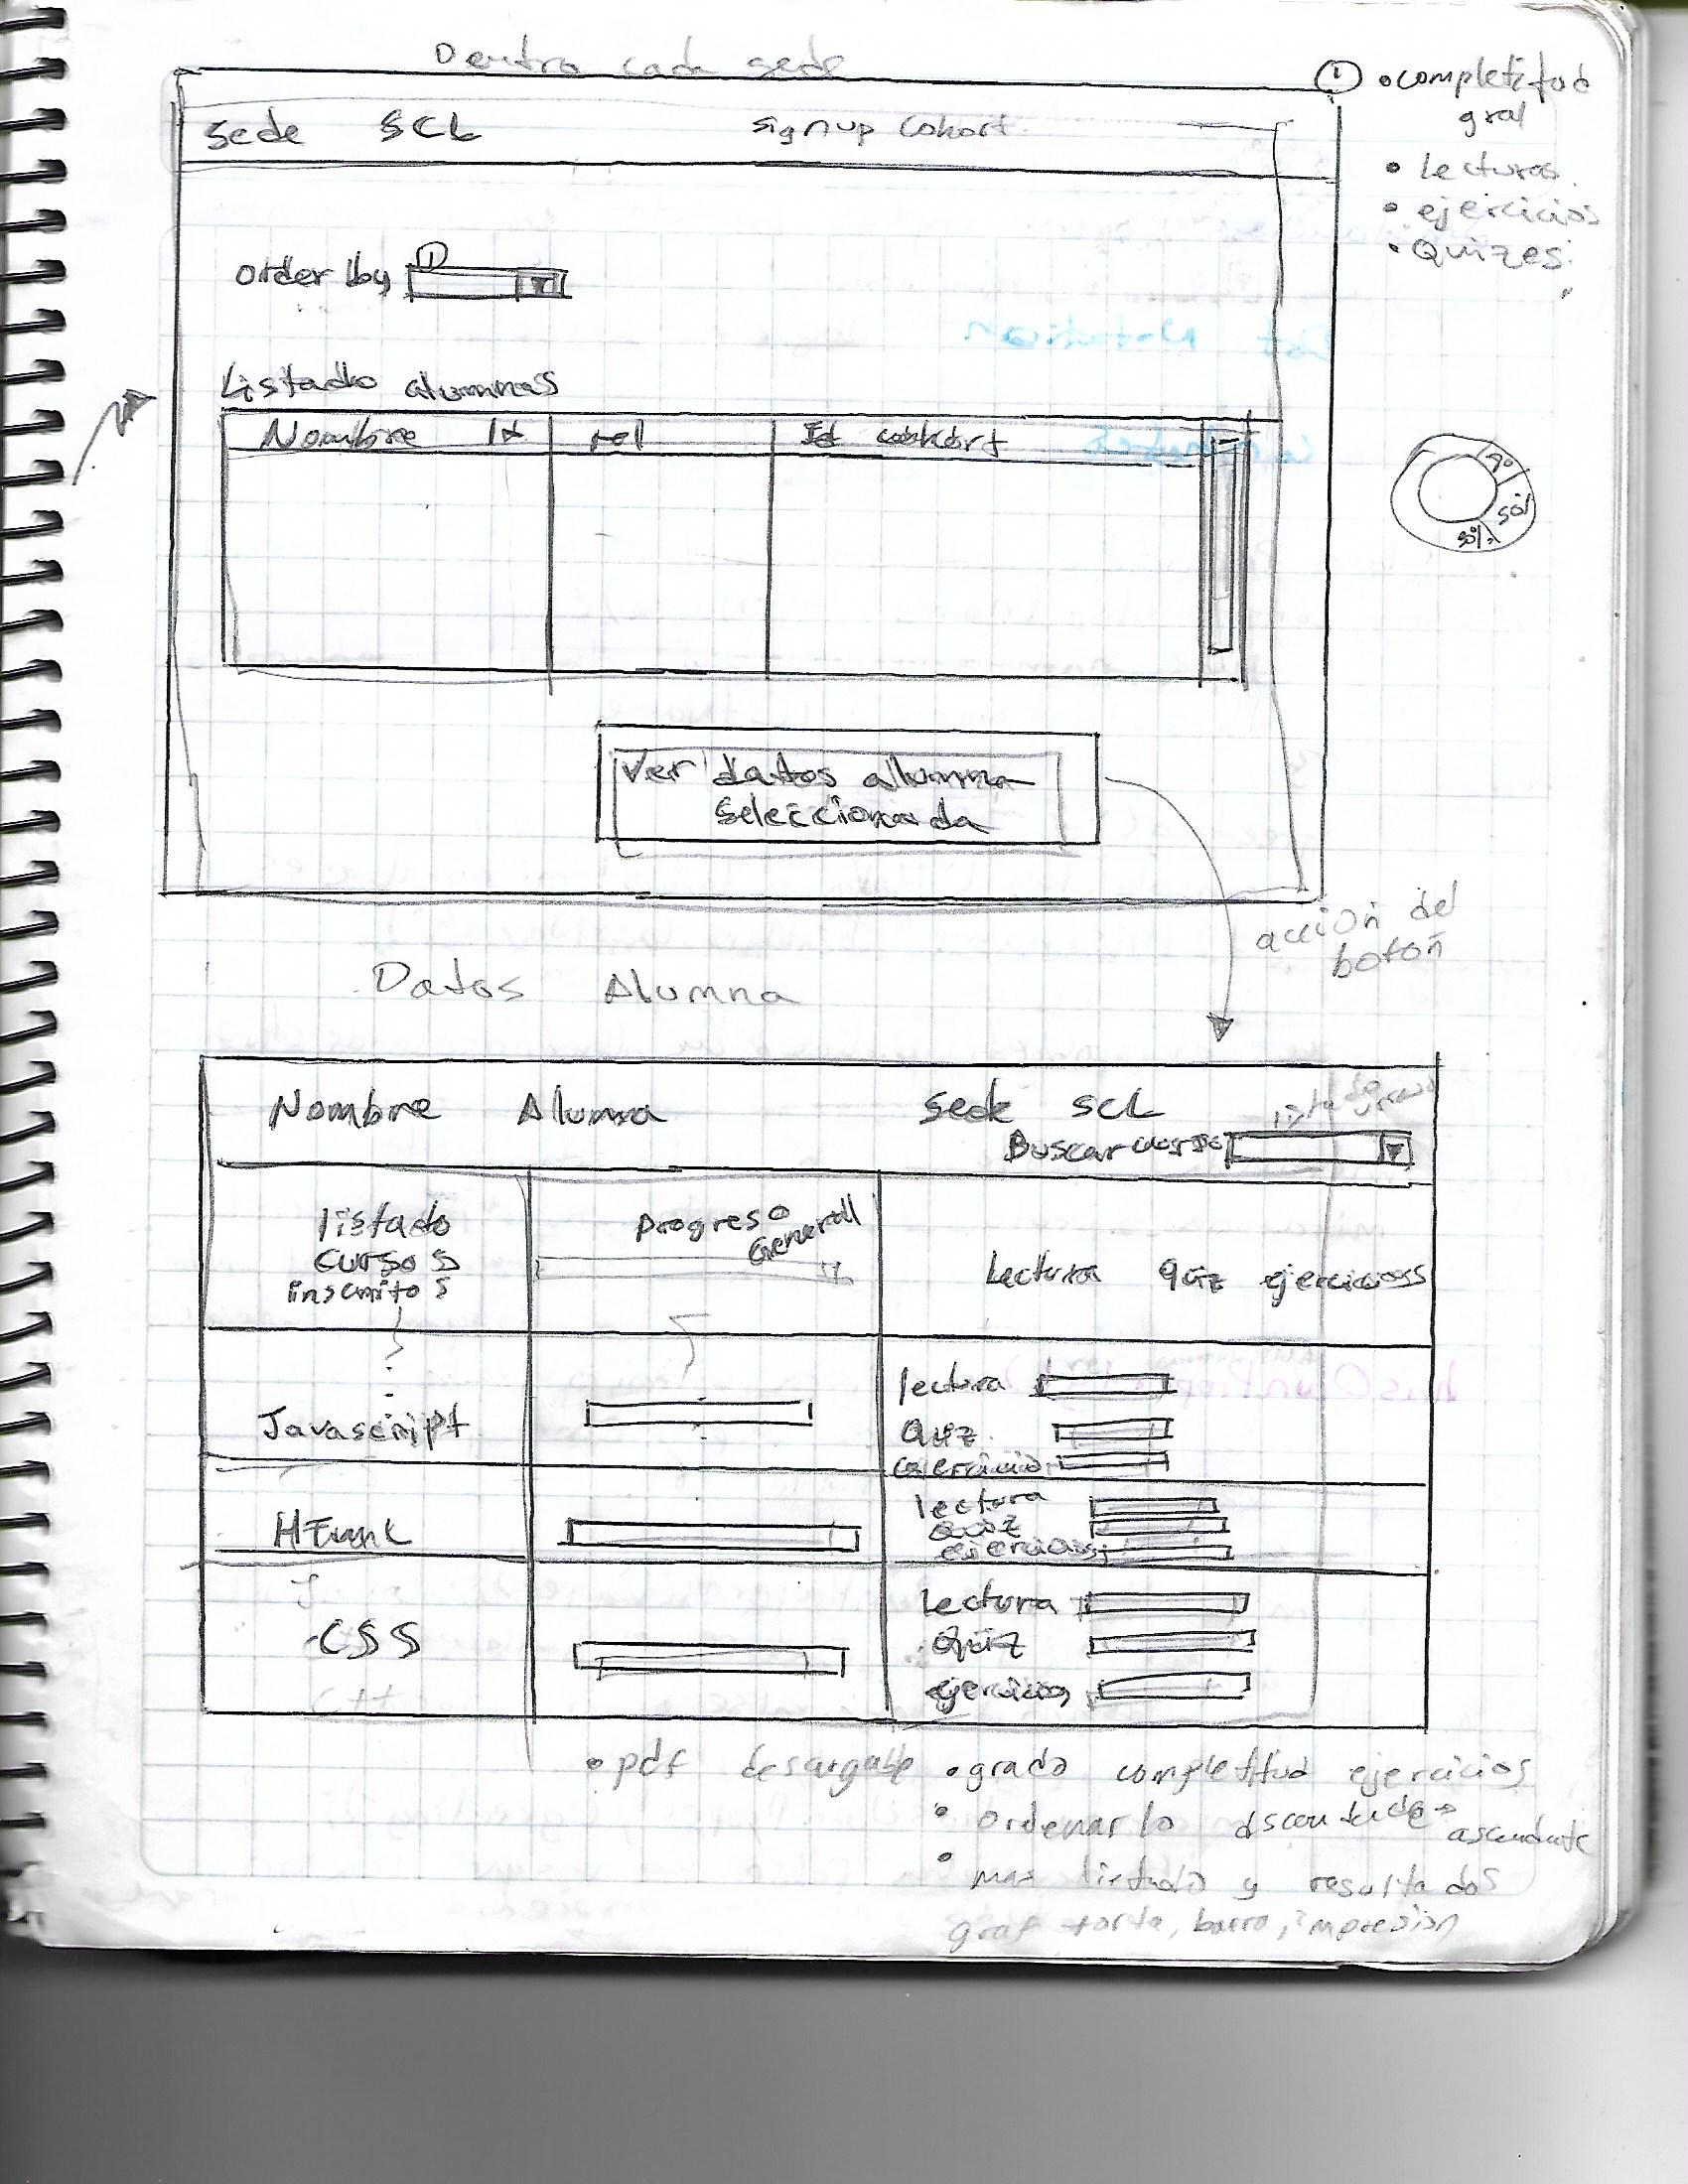 Dentro cada sede
① • completitud
gral
• Lecturas
• ejercicios
• Quizes
Sede SCL signup Cohort
order by ①
Listado alumnas
Nombre
Id cohort
90
50%
50%
Ver datos alumna
Seleccionada
acción del
botón
Datos Alumna
Nombre Alumna Sede SCL
Buscar curso
listado
cursos
inscritos
progreso
General
Lectura quiz ejercicios
Javascript
lectura
Quiz
ejercicio
HTML
lectura
Quiz
ejercicios
CSS
C++
Lectura
Quiz
ejercicios
• pdf descargable
• grado completitud ejercicios
• ordenarlo
ascendente
• mas listado y resultados
graf torta, barra, impresion